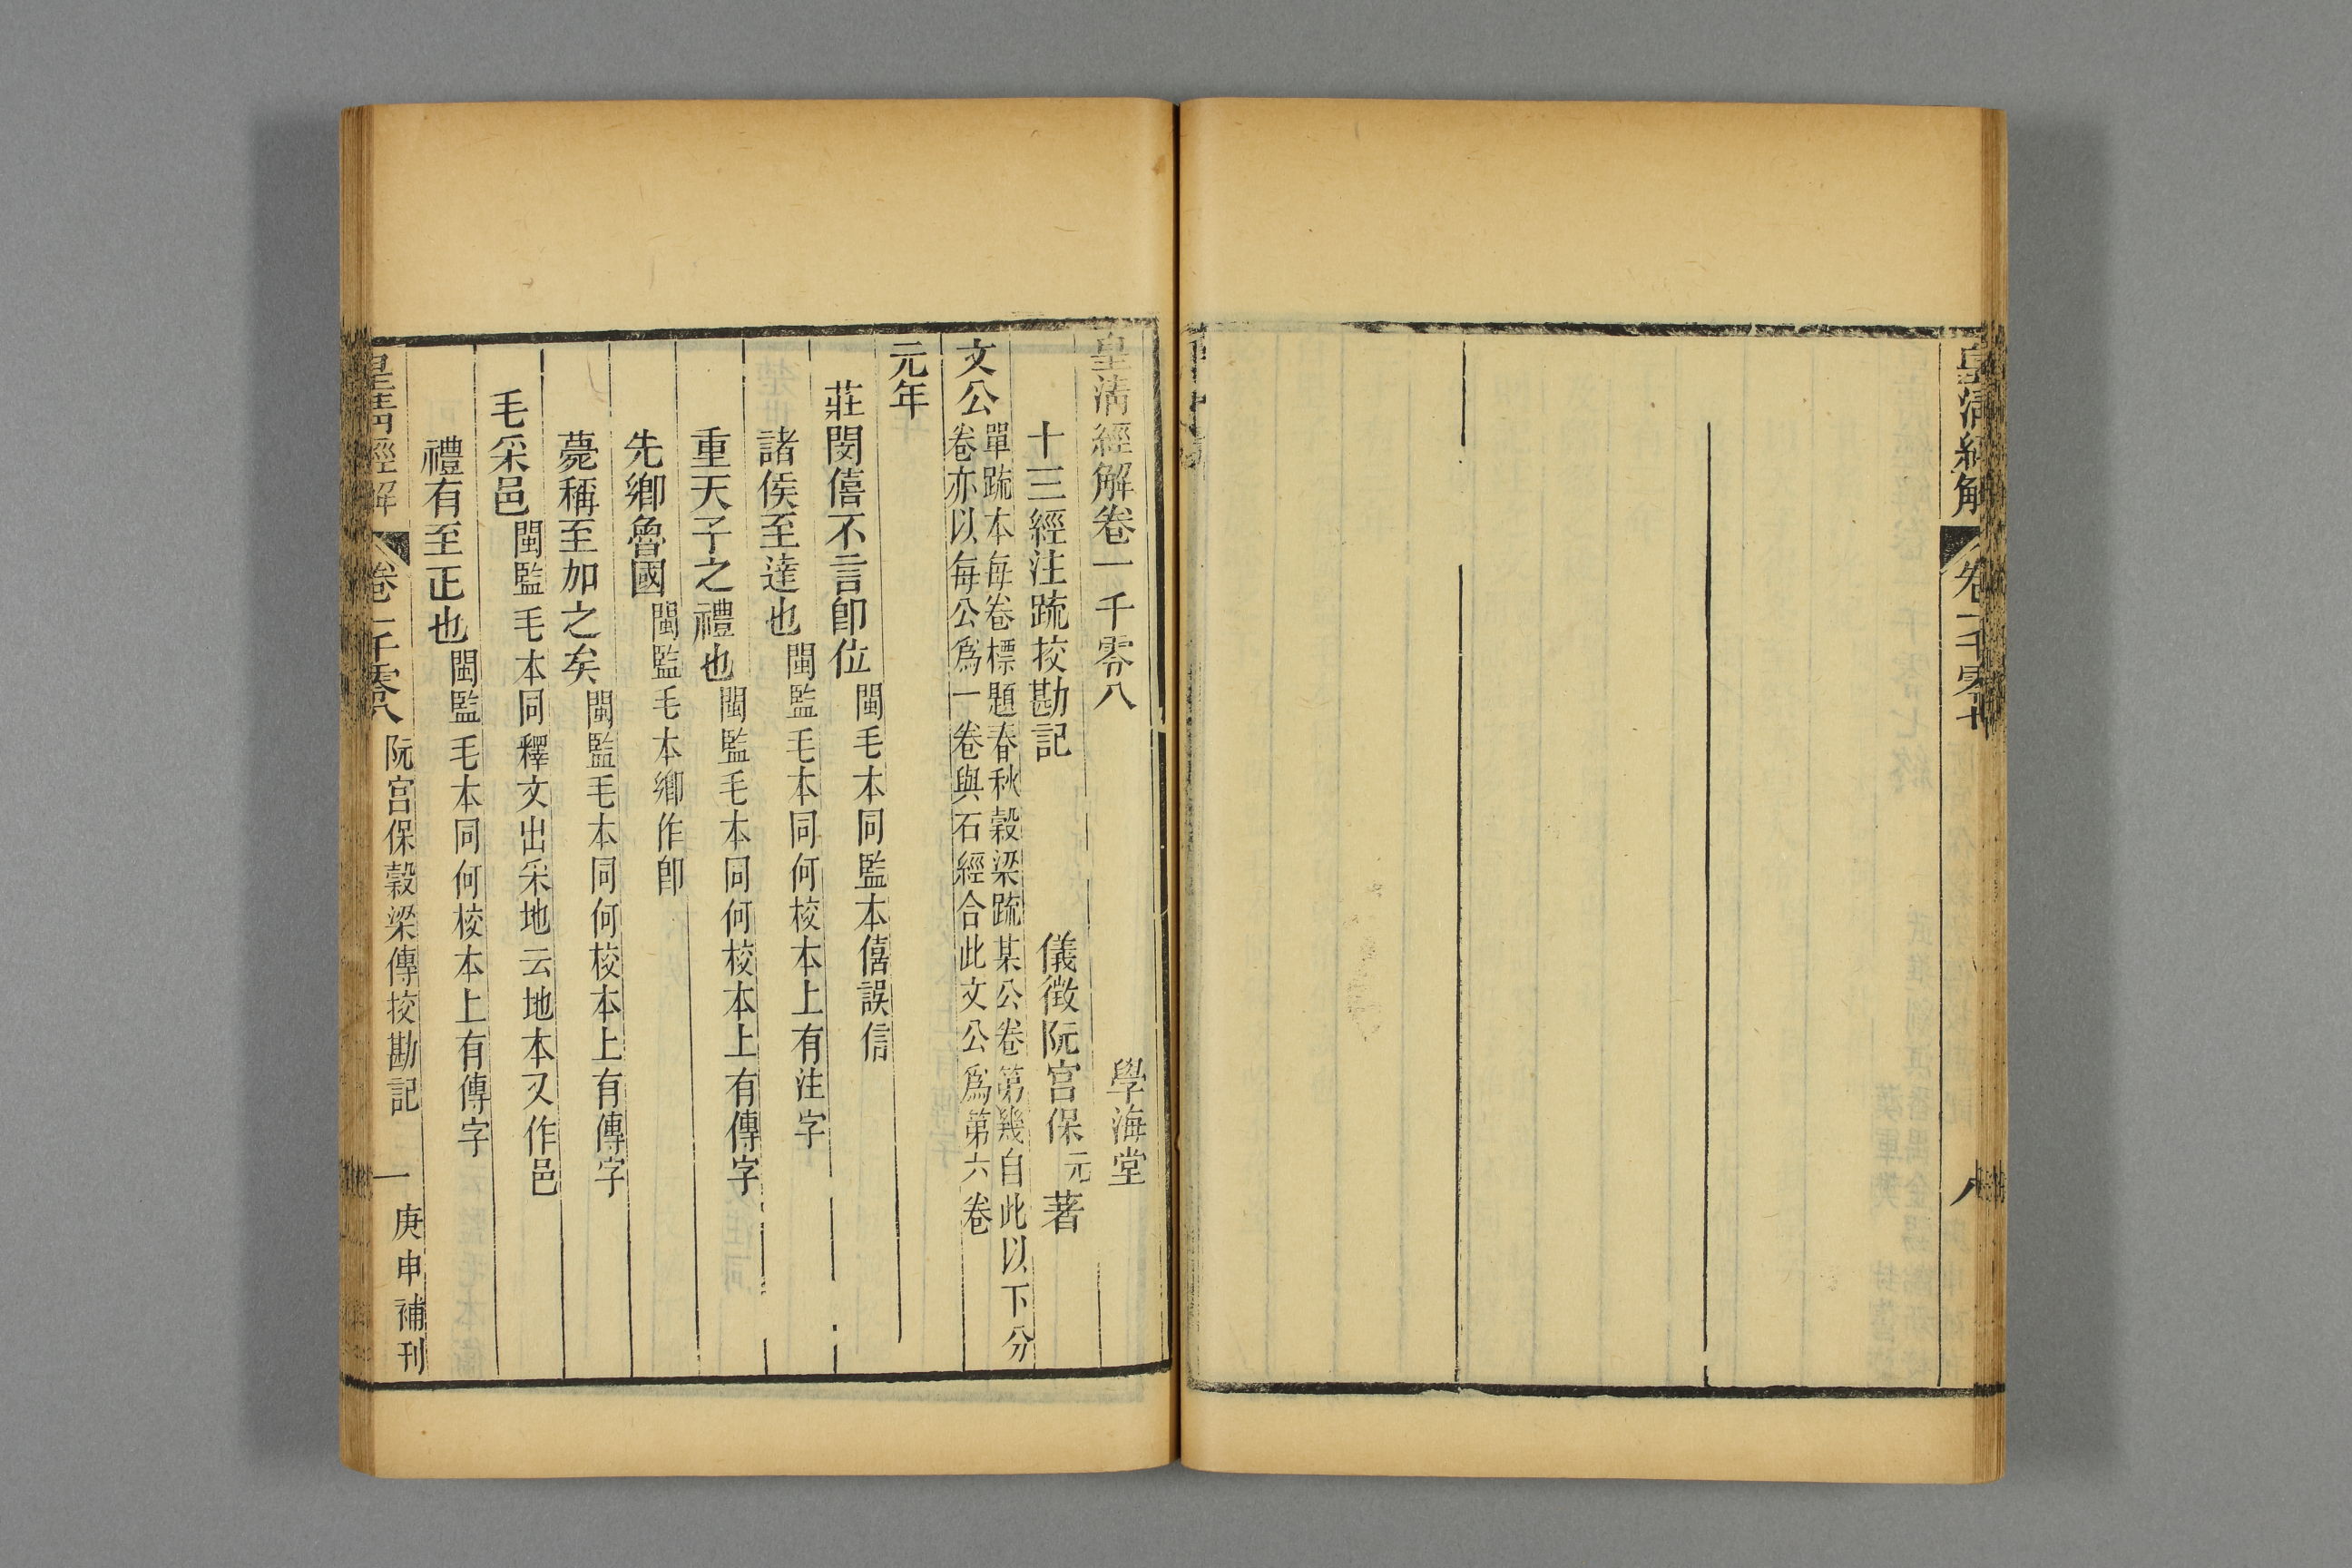 皇清經解
卷一千零七
八
皇清經解卷一千零八
學海堂
十三經注疏挍勘記
儀徵阮宮保元著
文公
單疏本每卷標題春秋穀梁疏某公卷第幾自此以下分
卷亦以每公爲一卷與石經合此文公爲第六卷
元年
莊閔僖不言卽位 閩毛本同監本僖誤信
諸侯至達也 閩監毛本同何校本上有注字
重天子之禮也 閩監毛本同何校本上有傳字
先鄉魯國 閩監毛本鄉作卽
薨稱至加之矣 閩監毛本同何校本上有傳字
毛采邑 閩監毛本同釋文出采地云地本又作邑
禮有至正也 閩監毛本同何校本上有傳字
皇清經解
卷一千零八
阮宮保穀梁傳挍勘記
一
庚申補刊